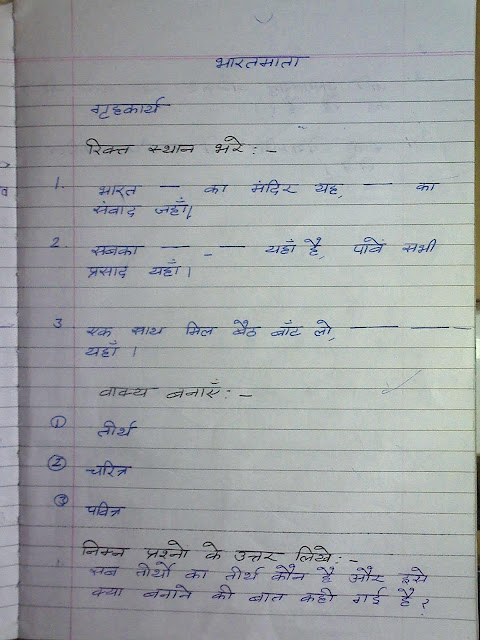 भारतमाता
गृहकार्य
रिक्त स्थान भरे :-
1. भारत — का मंदिर यह, — का
संवाद जहाँ।
2. सबका — - — यहाँ है, पावें सभी
प्रसाद यहाँ।
3 एक साथ मिल बैठ बाँट लो, — — —
यहाँ ।
वाक्य बनाएँ :-
① तीर्थ
② चरित्र
③ पवित्र
निम्न प्रश्नो के उत्तर लिखे :-
सब तीर्थो का तीर्थ कौन है और इसे
क्या बनाने की बात कही गई है?